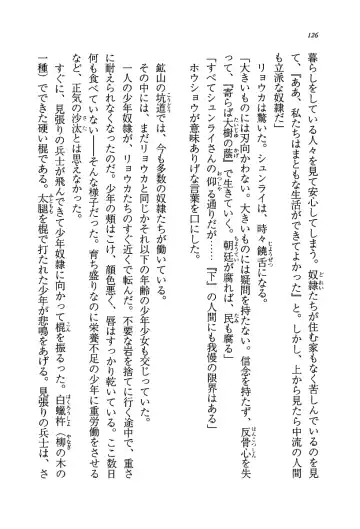 126
暮らしをしている人々を見て安心してしまう。奴隷たちが住む家もなく苦しんでいるのを見
て、『ああ、私たちはまともな生活ができてよかった』と。しかし、上から見たら中流の人間
も立派な奴隷だ」
リョウカは驚いた。シュンライは、時々饒舌になる。
「大きいものには刃向かわない。大きいものには疑問を持たない。信念を持たず、反骨心を失
って、『寄らば大樹の蔭』で生きていく。朝廷が腐れば、民も腐る」
「すべてシュンライさんの仰る通りだが……『下』の人間にも我慢の限界はある」
ホウショウが意味ありげな言葉を口にした。
鉱山の坑道では、今も多数の奴隷たちが働いている。
その中には、まだリョウカと同じかそれ以下の年齢の少年少女も交じっていた。
一人の少年奴隷が、リョウカたちのすぐ近くで転んだ。不要な岩を捨てに行く途中で、重さ
に耐えられなくなったのだ。少年の頬はこけ、顔色悪く、唇はすっかり乾いている。ここ数日
何も食べていない――そんな様子だった。育ち盛りなのに栄養不足の少年に重労働をさせるな
ど、正気の沙汰とは思えなかった。
すぐに、見張りの兵士が飛んできて少年奴隷に向かって棍を振るった。白蠟杵（柳の木の
一種）でできた硬い棍である。太腿を棍で打たれた少年が悲鳴をあげる。見張りの兵士は、さ